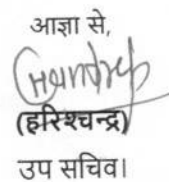 आज्ञा से,
(हरिश्चन्द्र)
उप सचिव।